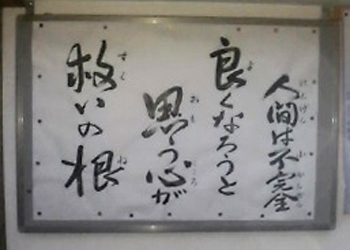 人間は不完全
良くなろうと
思う心が
救いの根